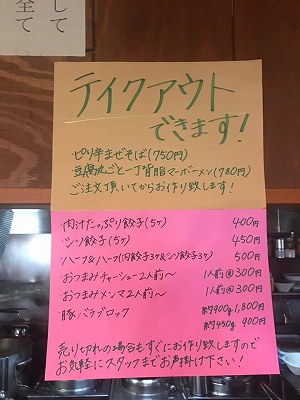 して
全て
テイクアウト
できます!
ピリ辛まぜそば(750円)
豆腐丸ごと一丁背脂マーボーメン(780円)
ご注文頂いてからお作り致します!
肉汁たっぷり餃子(5ヶ) 400円
シソ餃子(5ヶ) 450円
ハーフ&ハーフ(肉餃子3ヶ&シソ餃子3ヶ) 500円
おつまみチャーシュー2人前〜 1人前@300円
おつまみメンマ2人前〜 1人前@300円
豚バラブロック 約900g 1,800円
約450g 900円
売り切れの場合もすぐにお作り致しますので
お気軽にスタッフまでお声掛け下さい!